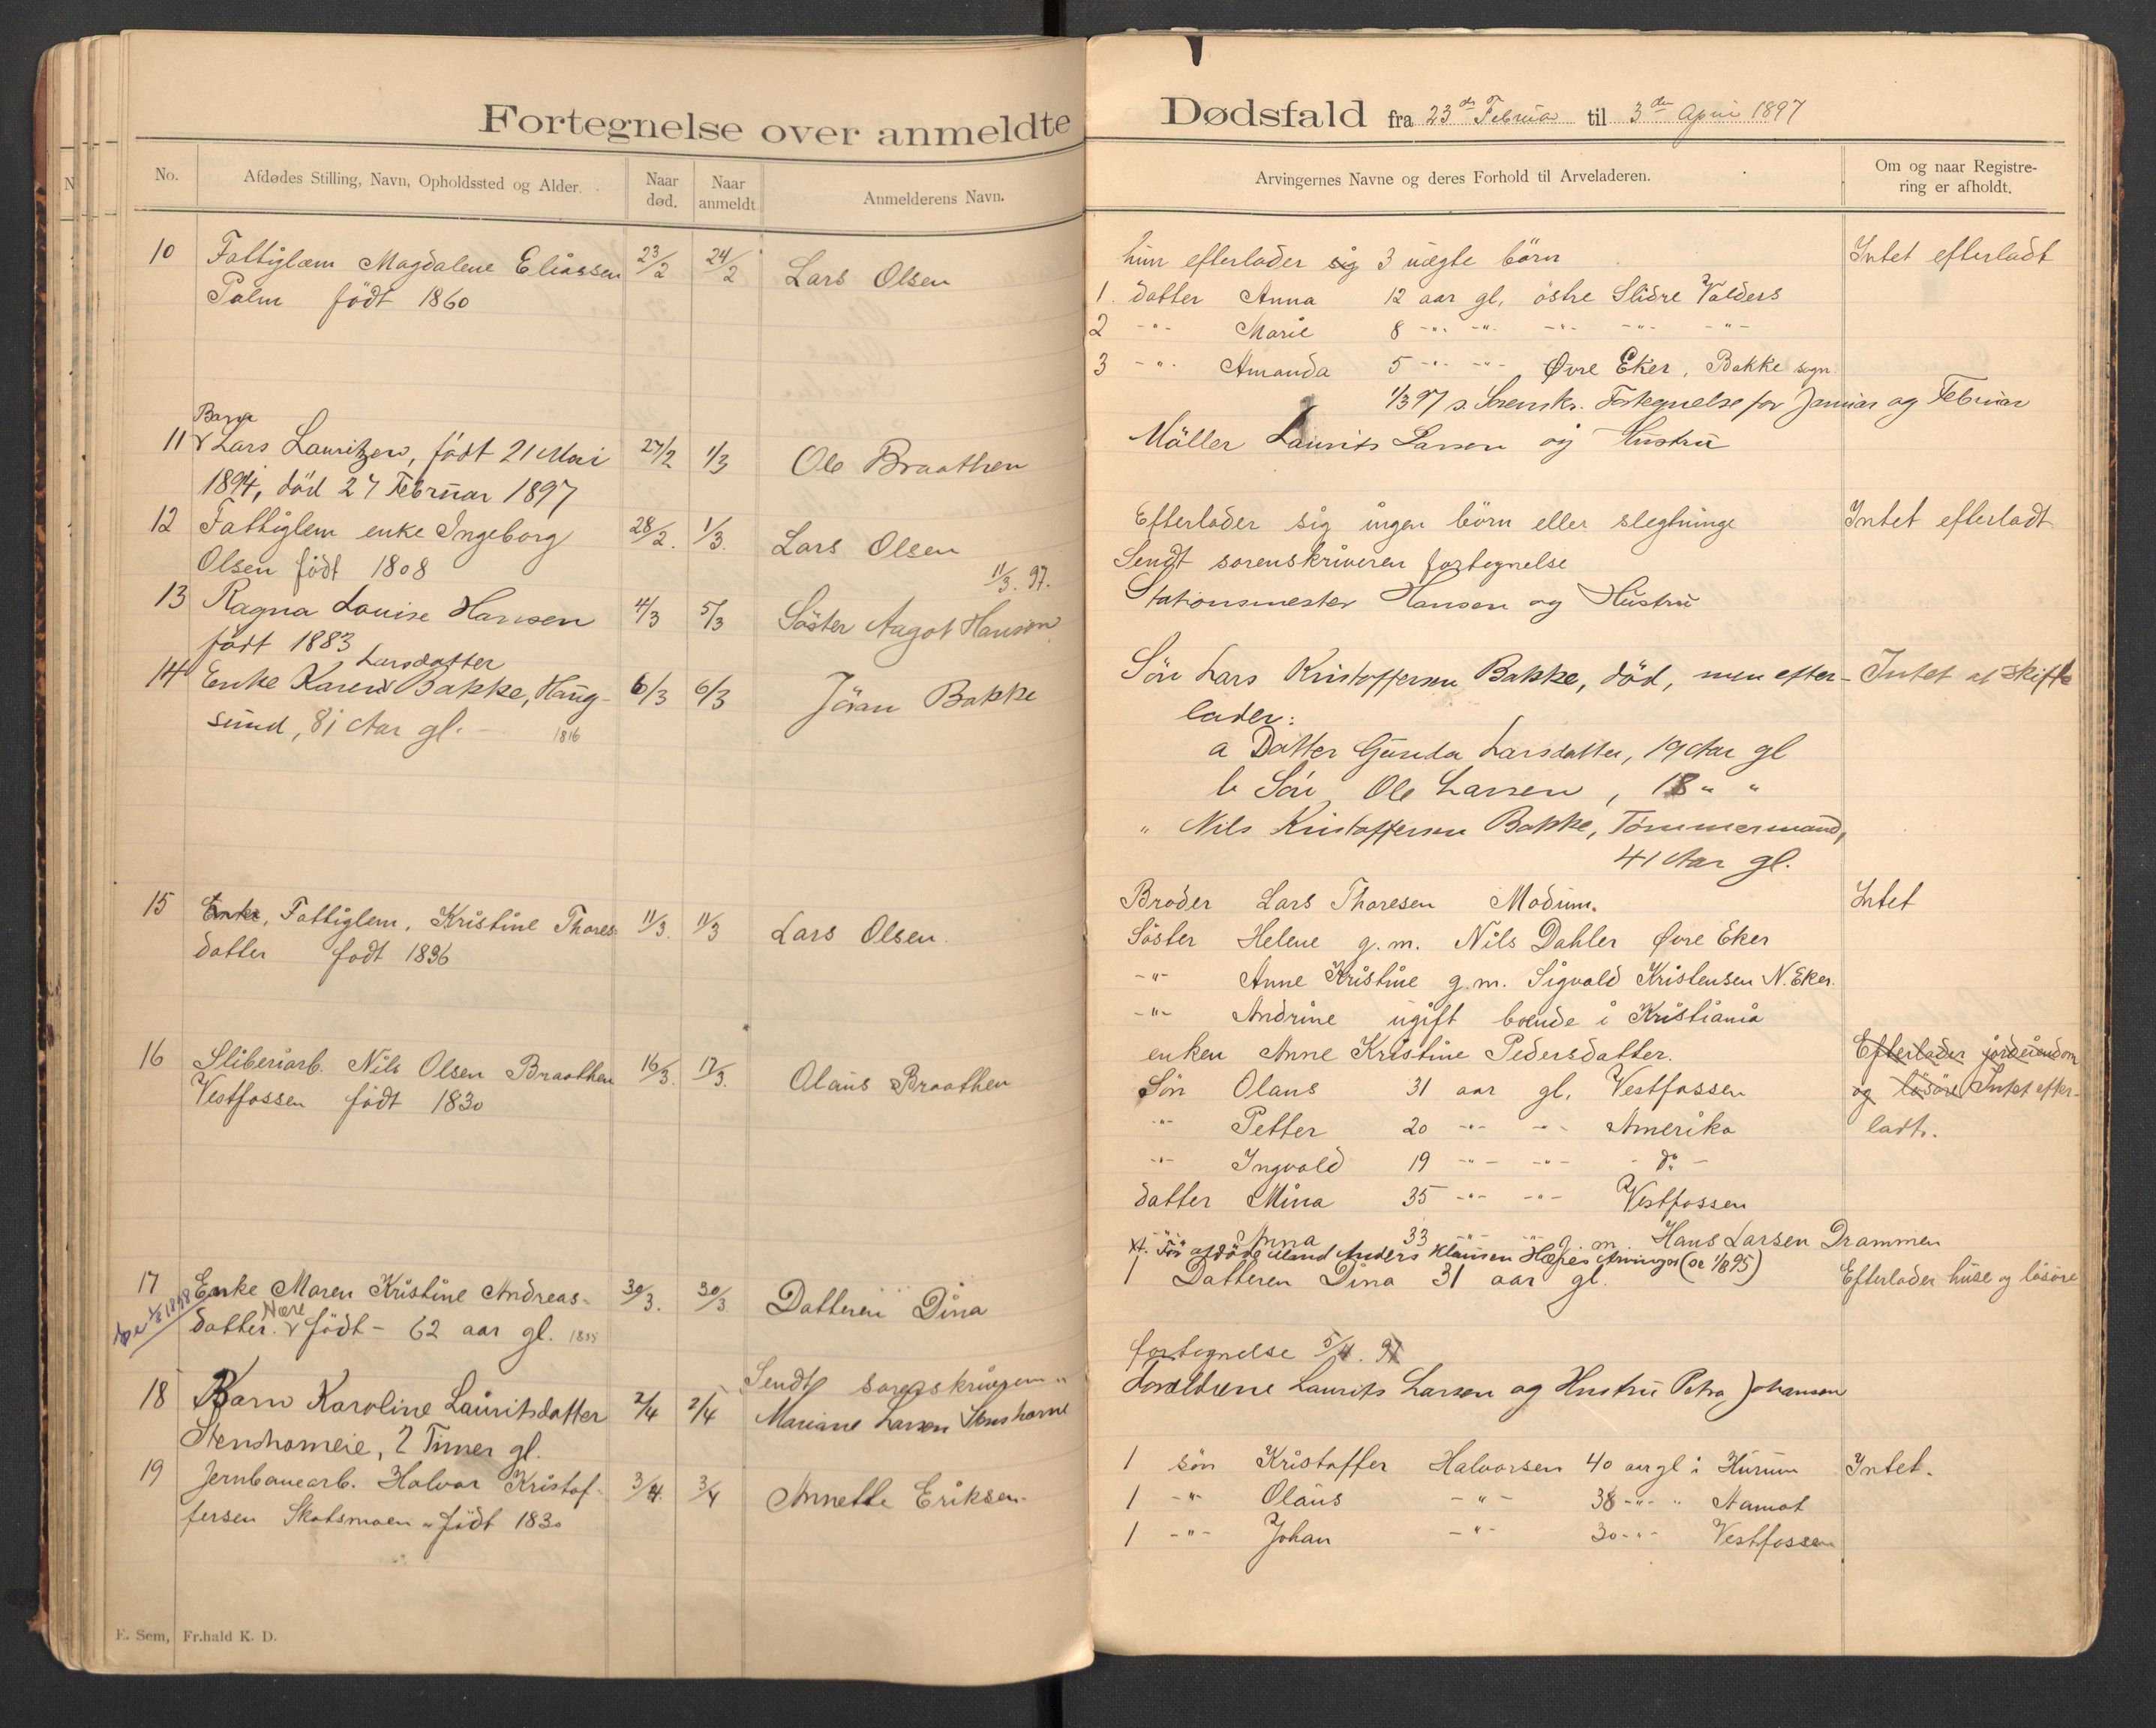 Fortegnelse over anmeldte
No.
Afdødes Stilling, Navn, Opholdssted og Alder.
Naar død.
Naar anmeldt
Anmelderens Navn.
10 Fattiglæm Magdalene Eliassen 23/2 24/2 Lars Olsen
Palm født 1860
Barn
11 Lars Lauritzen, født 21 Mai 27/2 1/3 Ole Braathen
1894, död 27 Februar 1897
12 Fattiglem enke Ingeborg 28/2. 1/3. Lars Olsen
Olsen født 1808
11/3. 97.
13 Ragna Louise Hansen 4/3 5/3 Søster Aagot Hansen
født 1883
Larsdatter
14 Enke Karen Bakke, Haug- 6/3 6/3 Jöran Bakke
sund, 81 Aar gl. – 1816
15 Enke, Fattiglem, Kristine Thores- 11/3. 11/3 Lars Olsen.
datter født 1836
16 Sliberiarb. Nils Olsen Braathen 16/3. 17/3. Olaus Braathen
Vestfossen født 1830
17 Enke Maren Kristine Andreas- 30/3. 30/3 Datteren Dina
Nære
datter. født – 62 aar gl.
Sendt sorenskriveren
18 Barn Karoline Lauritsdatter 2/4 2/4 Mariane Larsen Stenshorne
2 Timer gl.
19 Jernbanearb. Halvor Kristof- 3/4. 3/4 Annette Eriksen.
fersen Skotsmoen født 1830
E. Sem, Fr.hald K. D.
Dødsfald fra 23de Februar til 3de April 1897
Arvingernes Navne og deres Forhold til Arveladeren.
Om og naar Registre-
ring er afholdt.
hun efterlader sig 3 uægte børn Intet efterladt
1. datter Anna 12 aar gl. østre Slidre Valders
2 -"- Marie 8 -"- -"- -"- -"- -"-
3 -"- Amanda 5 -"- -"- Øvre Eker, Bakke sogn.
1/3 97 s. Sorenskr. Fortegnelse for Januar og Februar
Möller Laurits Larsen og Hustru
Efterlader sig ingen børn eller slegtninge Intet efterladt
Sendt sorenskriveren fortegnelse
Stationsmester Hansen og Hustru
Sön Lars Kristoffersen Bakke, död, men efter- Intet at skifte
lader:
a Datter Gunda Larsdatter, 19 Aar gl
b Sön Ole Larsen, 18 " "
" Nils Kristoffersen Bakke, Tømmermand,
41 Aar gl.
Broder Lars Thoresen Modum. Intet
Søster Helene g.m. Nils Dahler Øvre Eker
-"- Anne Kristine g.m. Sigvald Kristensen N. Eker.
-"- Andrine ugift boende i Kristiania
enken Anne Kristine Pedersdatter. Efterlader jordeiendom
Søn Olaus 31 aar gl. Vestfossen og løsøre Intet efter-
-"- Petter 20 -"- -"- Amerika ladt.
-"- Ingvald 19 -"- -"- - do -
datter Mina 35 -"- -"- Vestfossen
-"- Anna 33 -"- -"- g.m. Hans Larsen Drammen
För afdöde Mand Anders Klausen Arvinger
1 Datteren Dina 31 aar gl. Efterlader huse og løsøre
fortegnelse 5/4. 97
Forældrene Laurits Larsen og Hustru Petra Johansen
1 søn Kristoffer Halvorsen 40 aar gl i Hurum Intet.
1 -"- Olaus -"- 38 -"- "
1 -"- Johan -"- 30 -"- Vestfossen